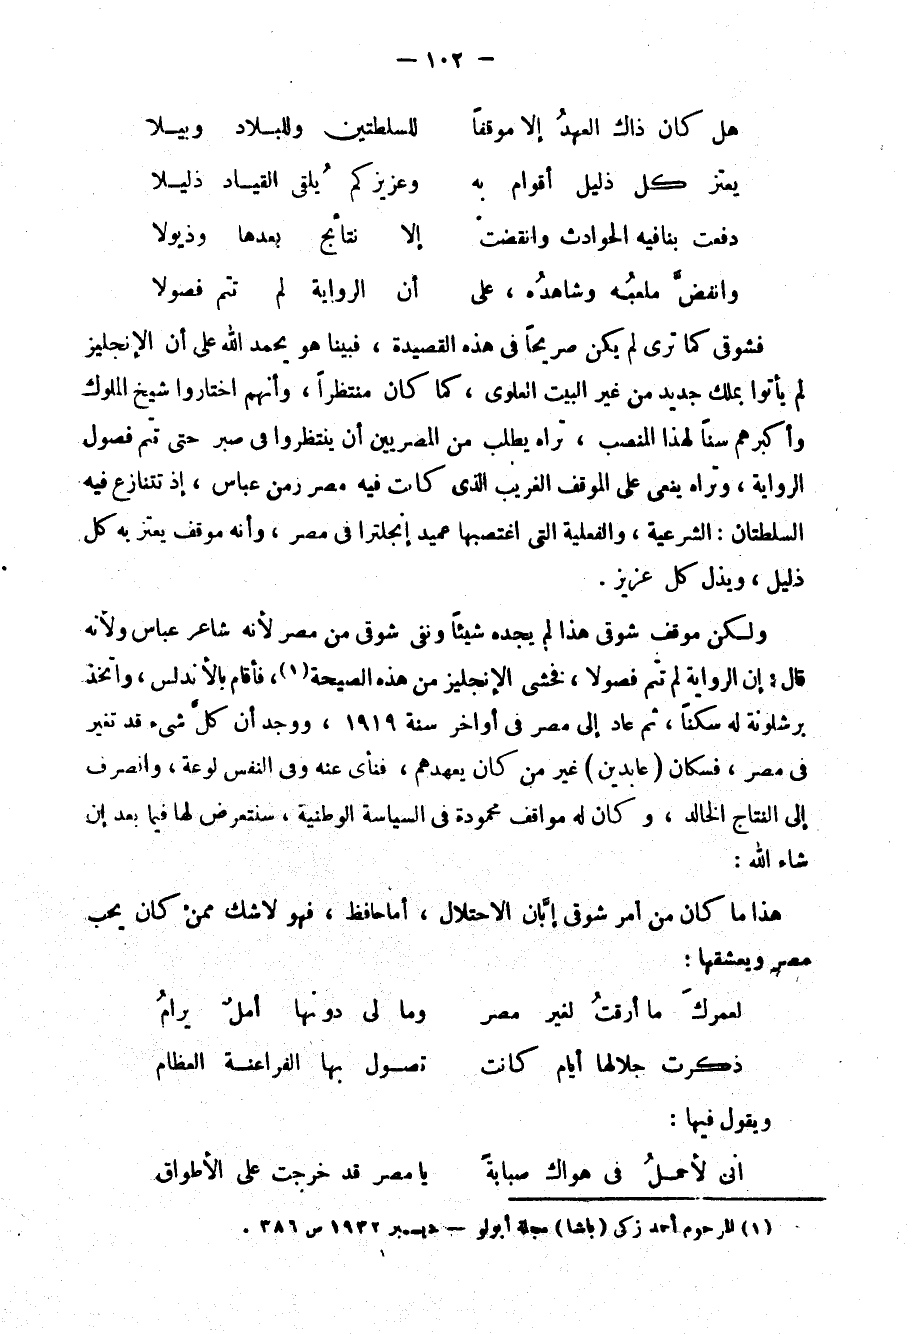 — ١٠٢ —
هل كان ذاك العهدُ إلا موقفاً للسلطتين وللبـلاد وبيـلا
يعتز كل ذليل أقوام به وعزيزكم يُلقى القيـاد ذليـلا
دفعت بنافيه الحوادث وانقضتْ إلا نتائج بعدها وذيولا
وانفضَّ ملعبُـه وشاهدُه ، على أن الرواية لم تتم فصولا
فشوقى كما ترى لم يكن صريحاً فى هذه القصيدة ، فبينا هو يحمد الله على أن الإنجليز
لم يأتوا بملك جديد من غير البيت العلوى ، كما كان منتظراً ، وأنهم اختاروا شيخ الملوك
وأكبرهم سناً لهذا المنصب ، تراه يطلب من المصريين أن ينتظروا فى صبر حتى تتم فصول
الرواية ، وتراه ينعى على الموقف الغريب الذى كانت فيه مصر زمن عباس ، إذ تتنازع فيه
السلطتان : الشرعية ، والفعلية التى اغتصبها عميد إنجلترا فى مصر ، وأنه موقف يعتز به كل
ذليل ، ويذل كل عزيز .
ولـكن موقف شوقى هذا لم يجده شيئاً ونفى شوقى من مصر لأنه شاعر عباس ولأنه
قال : إن الرواية لم تتم فصولا ، فخشى الإنجليز من هذه الصيحة(١)، فأقام بالأندلس ، واتخذ
برشلونة له سكناً ، ثم عاد إلى مصر فى أواخر سنة ١٩١٩ ، ووجد أن كلَّ شىء قد تغير
فى مصر ، فسكان (عابدين) غير من كان يعهدهم ، فنأى عنه وفى النفس لوعة ، وانصرف
إلى النتاج الخالد ، و كان له مواقف محمودة فى السياسة الوطنية ، سنتعرض لها فيما بعد إن
شاء الله :
هذا ما كان من أمر شوقى إبَّان الاحتلال ، أما حافظ ، فهو لاشك ممنْ كان يحب
مصر ويعشقها :
لعمركَ ما أرقتُ لغير مصر وما لى دونها أملٌ يرامُ
ذكرت جلالها أيام كانت تصـول بها الفراعنـة العظام
ويقول فيها :
انى لأحمـلُ فى هواك صبابةً يا مصر قد خرجت على الأطواق
(١) للمرحوم أحمد زكى (باشا) مجلة أبولو — ديسمبر ١٩٣٢ ص ٣٨٦ .